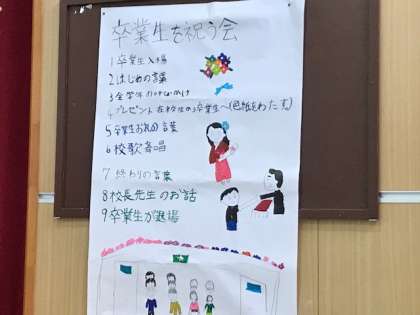 卒業生を祝う会
1 卒業生入場
2 はじめの言葉
3 全学年
4 プレゼント 在校生から卒業生へ(色紙をわたす)
5 卒業生お礼の言葉
6 校歌斉唱
7 終わりの言葉
8 校長先生のお話
9 卒業生が退場